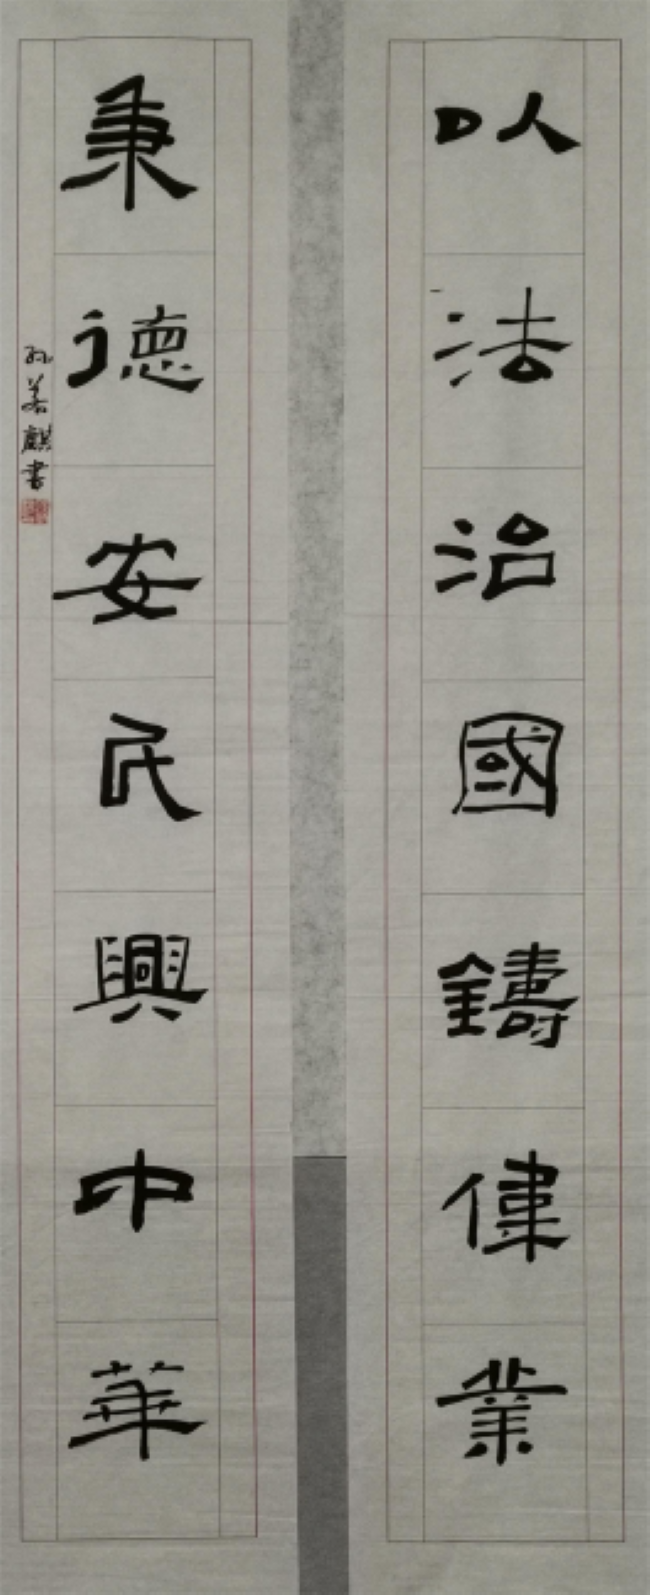 以法治國鑄偉業
秉德安民興中華
孫善麒書